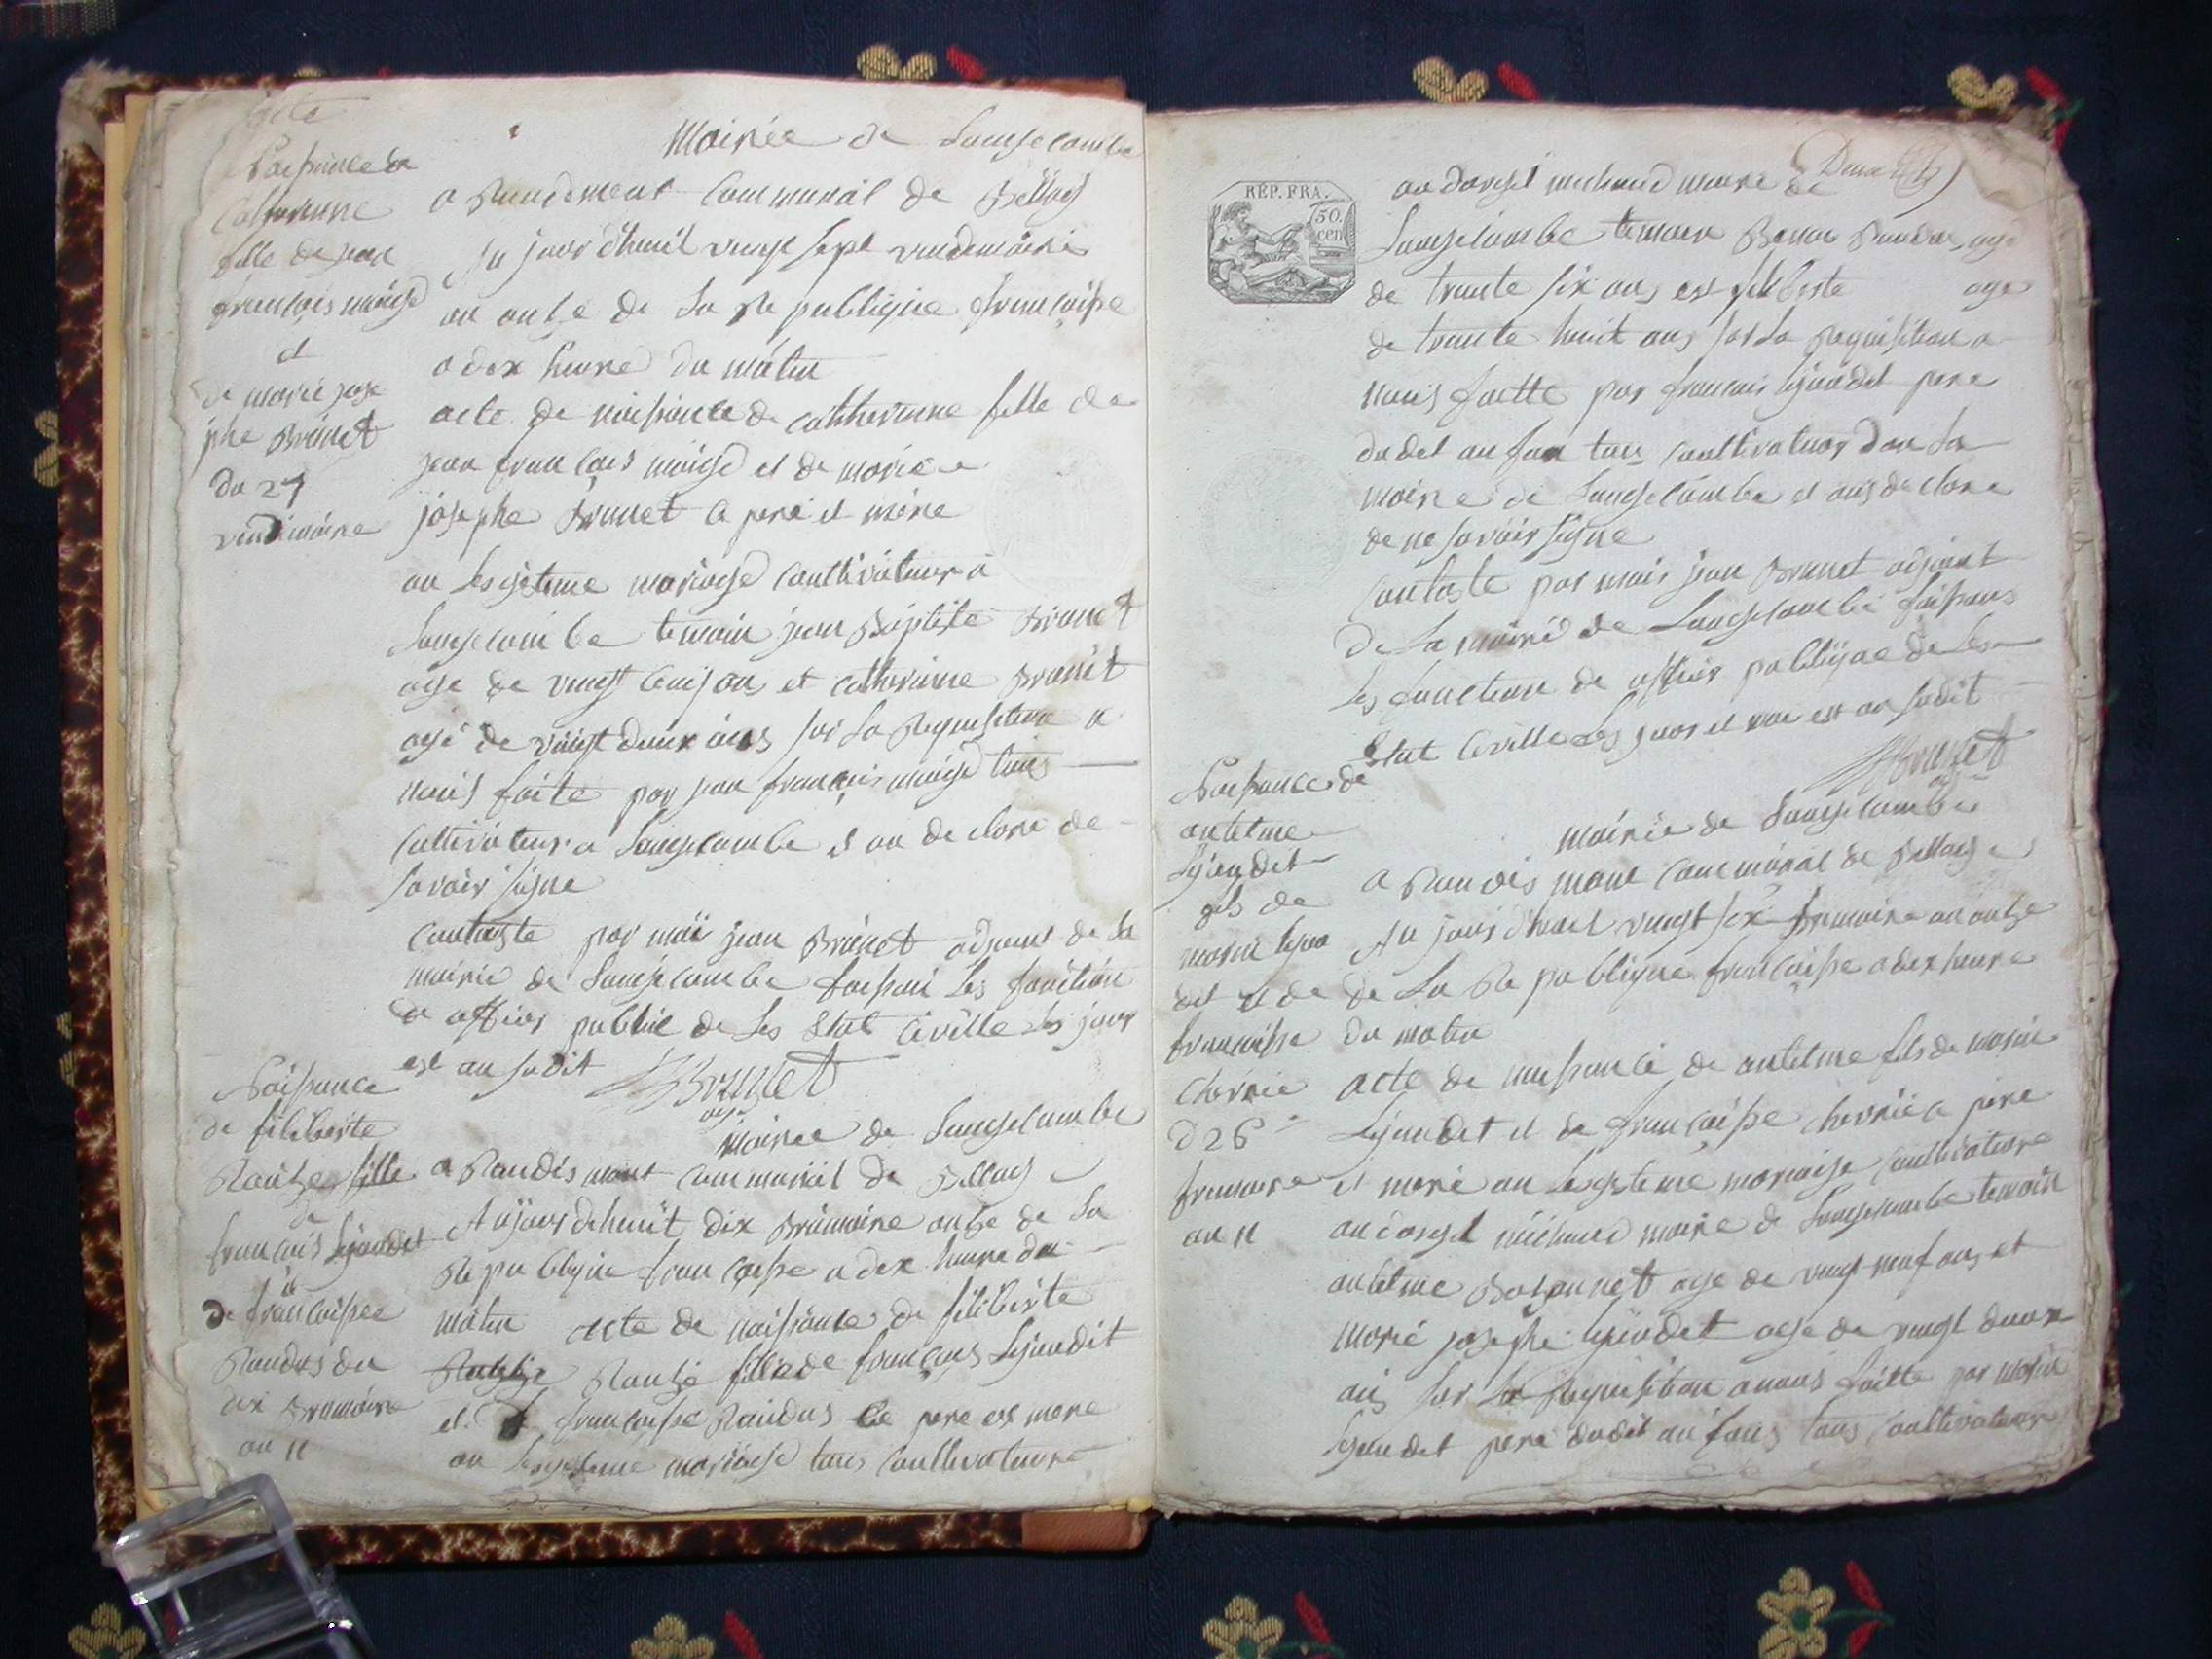 Mairie de Longecombe
Naissance de
Catherinne
fille de jean
francois maigod
et
de marie jose
phe Brunet
du 27
vendimaire
arondement Communal de Bellay
au jour d'huit vingt sept vendemaire
an onze de La Re publique francaisse
a dix heure du matin
acte de naissance de catherinne fille de
jean francois maigod et de marie
josephe Brunet le pere et mere
an Legitime mariage coultivateur a
Longecombe temoin jean Baptiste Brunet
age de vingt cinq ans et catherinne Brunet
agé de vingt deux ans sur La Requisition a
nous faite par jean francois maigod tous
Cultivateur a Longecombe et on declare de
savoir signe
Contaste par moi jean Brunet adjoint de la
mairie de Longecombe faissant Les fonction
de officier public de Les Etat civille Les jour
est an sudit
JBrunet
adj
Naissance
de filiberte
Rouze fille
de
francois Lejeudet
et
de francoisse
Raudus du
dix Brumaire
an 11
Mairie de Longecombe
a Rondismant communal de Bellay
Aujourdehuit dix Brumaire onze de La
Re publique francaisse a dix heure du
matin acte de naissance de filiberte
Rouze fille de francois Lejeudet
et francoisse Raudus le pere et mere
an Legitime mariage tous coultivateure
REP. FRA.
50.
cen
an dorgel michaud maire de
Longecombe temoin Raudus age
de trante six ans et filiberte age
de trante huit ans sur La Requisition a
nous faitte par francois lejeudet pere
dudet anfan tous coultivateur dan La
mairie de Longecombe et ons declare
de ne savoir signe
Contaste par moi jean Brunet adjoint
de La mairie de Longecombe faissans
Les fonction de officier publique de Les
Etat Civille Les jour et moi est an sudit
JBrunet
adj
Naissance de
antelme
Lejeudet
fils de
marie lejeu
det et de
francoisse
Chervie
d 26
frimaire
an 11
Mairie de Longecombe
a Rondis mant communal de Bellay
Au jour d'huit vingt six frimaire an onze
de La Re publique francaisse a dix heure
du matin
acte de naissance de antelme fils de marie
Lejeudet et de francoisse chervie a pere
et mere an Legitime mariage coultivateure
an dorgel michaud maire de Longecombe temoin
antelme age de vingt neuf ans et
marie josephe lejeudet age de vingt deux
ans sur La Requisition a nous faitte par marie
Lejeudet pere dudet anfans tous coultivateure